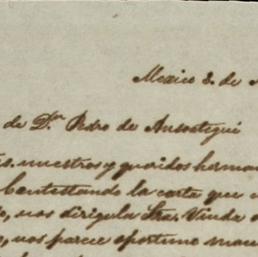 Mexico 8. de
de D.ⁿ Pedro de Ansoategui
nuestros y queridos herma
Contestando la carta que
nos dirigula Sra. Viuda
nos parece oportuno man